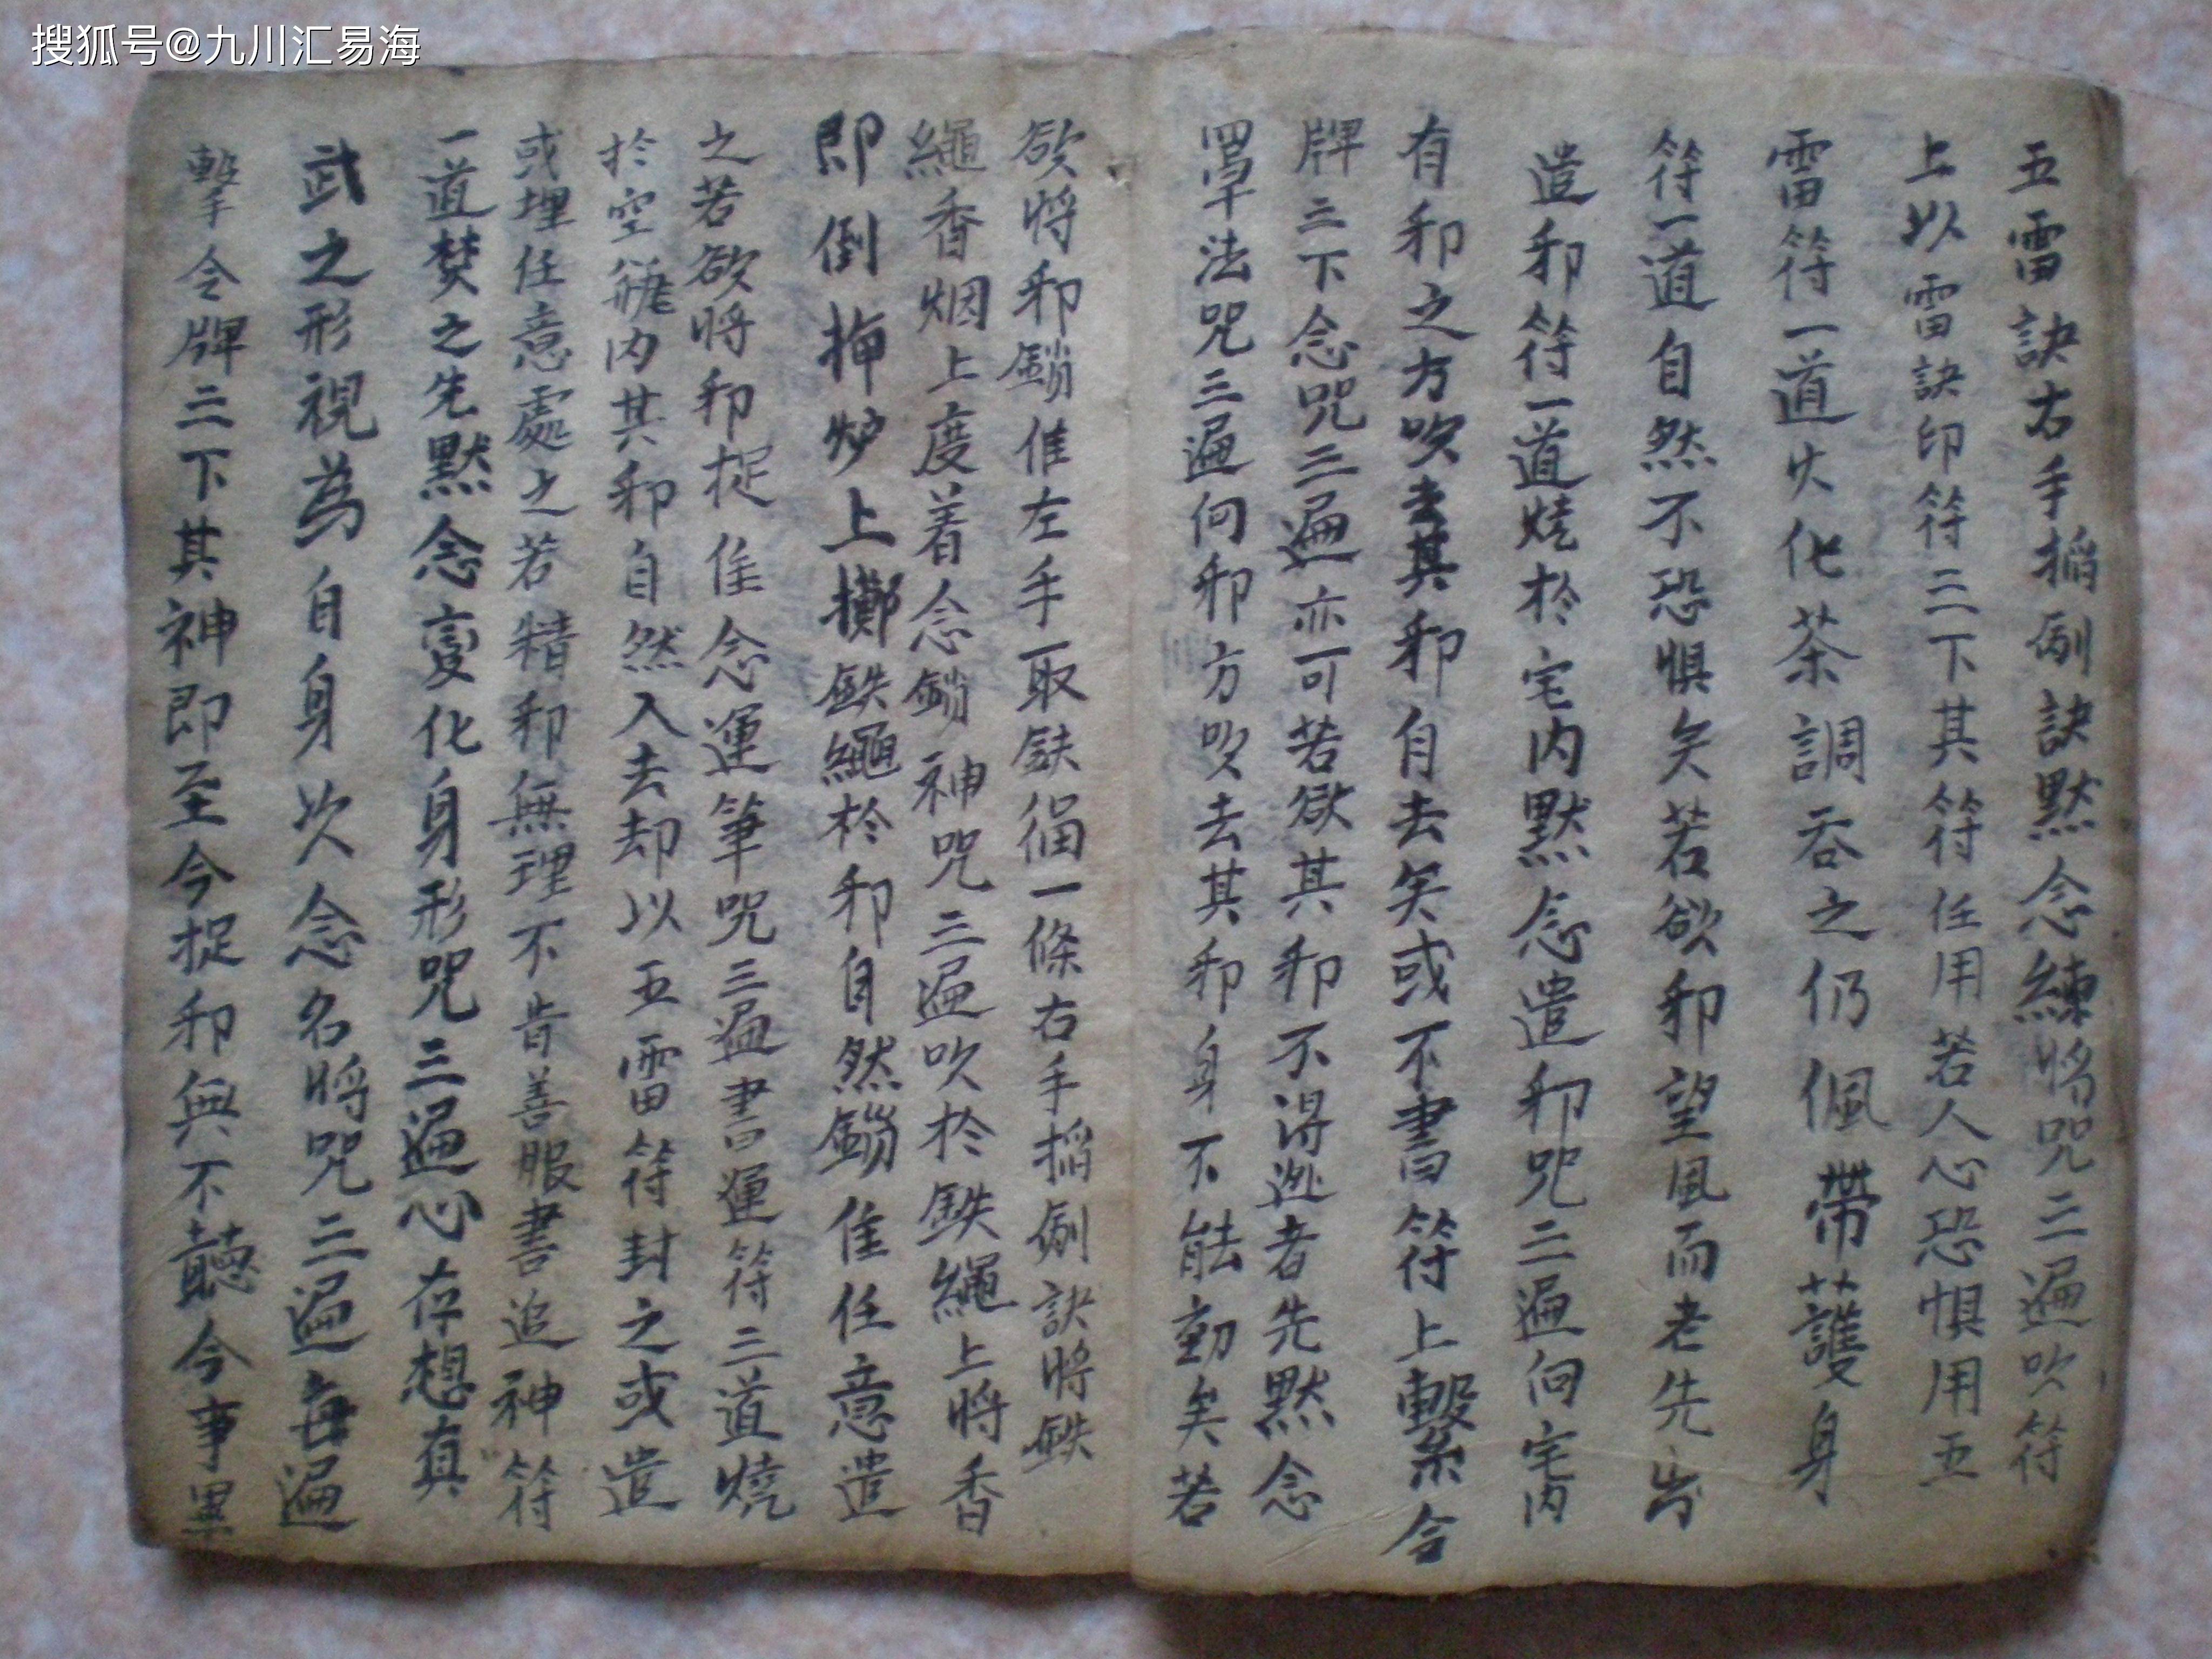 搜狐号@九川汇易海
五雷訣右手搯劍訣默念練將咒三遍吹符
上以雷訣印符三下其符任用若人心恐惧用五
雷符一道火化茶調吞之仍佩帶護身
符一道自然不恐惧矣若欲邪望風而老先出
遣邪符一道燒於宅内默念遣邪咒三遍向宅内
有邪之方吹去其邪自去矣或不書符上擊令
牌三下念咒三遍亦可若欲其邪不得逃者先默念
罩法咒三遍向邪方吹去其邪身不能動矣若
欲将邪鎖隹左手取鉄一條右手搯劍訣將鉄
繩香烟上度着念鎖神咒三遍吹於鉄繩上將香
即倒押炉上擲鉄繩於邪自然鎖隹任意遣
之若欲將邪捉隹念運筆咒三遍書運符二道燒
於空瓶内其邪自然入去却以五雷符封之或遣
或埋任意處之若精邪無理不肯善服書追神符
一道焚之先默念变化身形咒三遍心存想真
武之形視為自身次念名將咒三遍每遍
擊令牌三下其神即至令捉邪無不聽令事畢